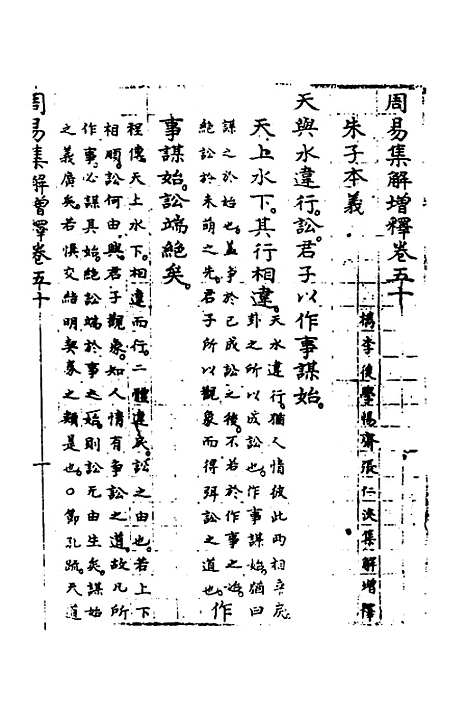 周易集解增釋卷五十
朱子本義
檇李後學惕齋張仁浹集解增釋
天與水違行。訟。君子以作事謀始。
天上水下。其行相違。
天水違行。猶人情彼此兩相乖戾
卦之所以成訟也。作事謀始。猶曰
謀之於始也。蓋爭於已成訟之後。不若於作事之始。
絕訟於未萌之先。君子所以觀象而得弭訟之道也。
作
事謀始。訟端絕矣。
程傳。天上水下。相違而行。二體違戾。訟之由也。若上下
相順。訟何由興。君子觀象。知人情有爭訟之道。故凡所
作事。必謀其始。絕訟端於事之始。則訟无由生矣。謀始
之義廣矣。若慎交結明契券之類是也。○節孔疏。天道
周易集解增釋卷五十
一